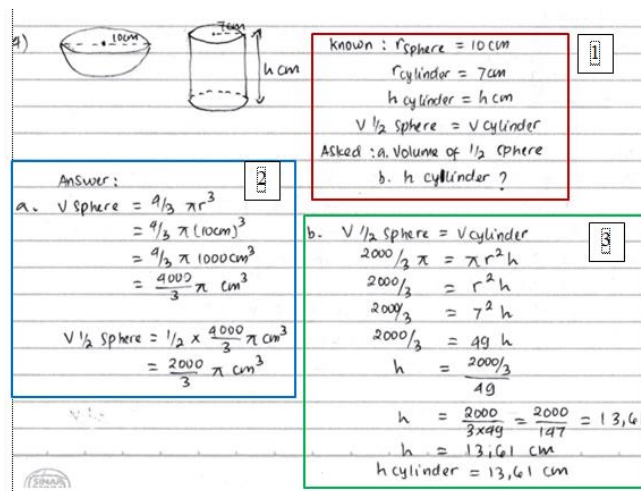 4)
10cm
7cm
h cm
1
Known : r sphere = 10 cm
r cylinder = 7cm
h cylinder = h cm
V 1/2 sphere = V cylinder
Asked : a. Volume of 1/2 sphere
b. h cyllinder ?
2
Answer :
a. V sphere = 4/3 πr³
= 4/3 π (10cm)³
= 4/3 π 1000 cm³
= 4000/3 π cm³
V 1/2 sphere = 1/2 × 4000/3 π cm³
= 2000/3 π cm³
3
b. V 1/2 sphere = V cylinder
2000/3 π = πr²h
2000/3 = r²h
2000/3 = 7²h
2000/3 = 49 h
h = 2000/3 / 49
h = 2000/3×49 = 2000/147 = 13,6
h = 13,61 cm
h cylinder = 13,61 cm